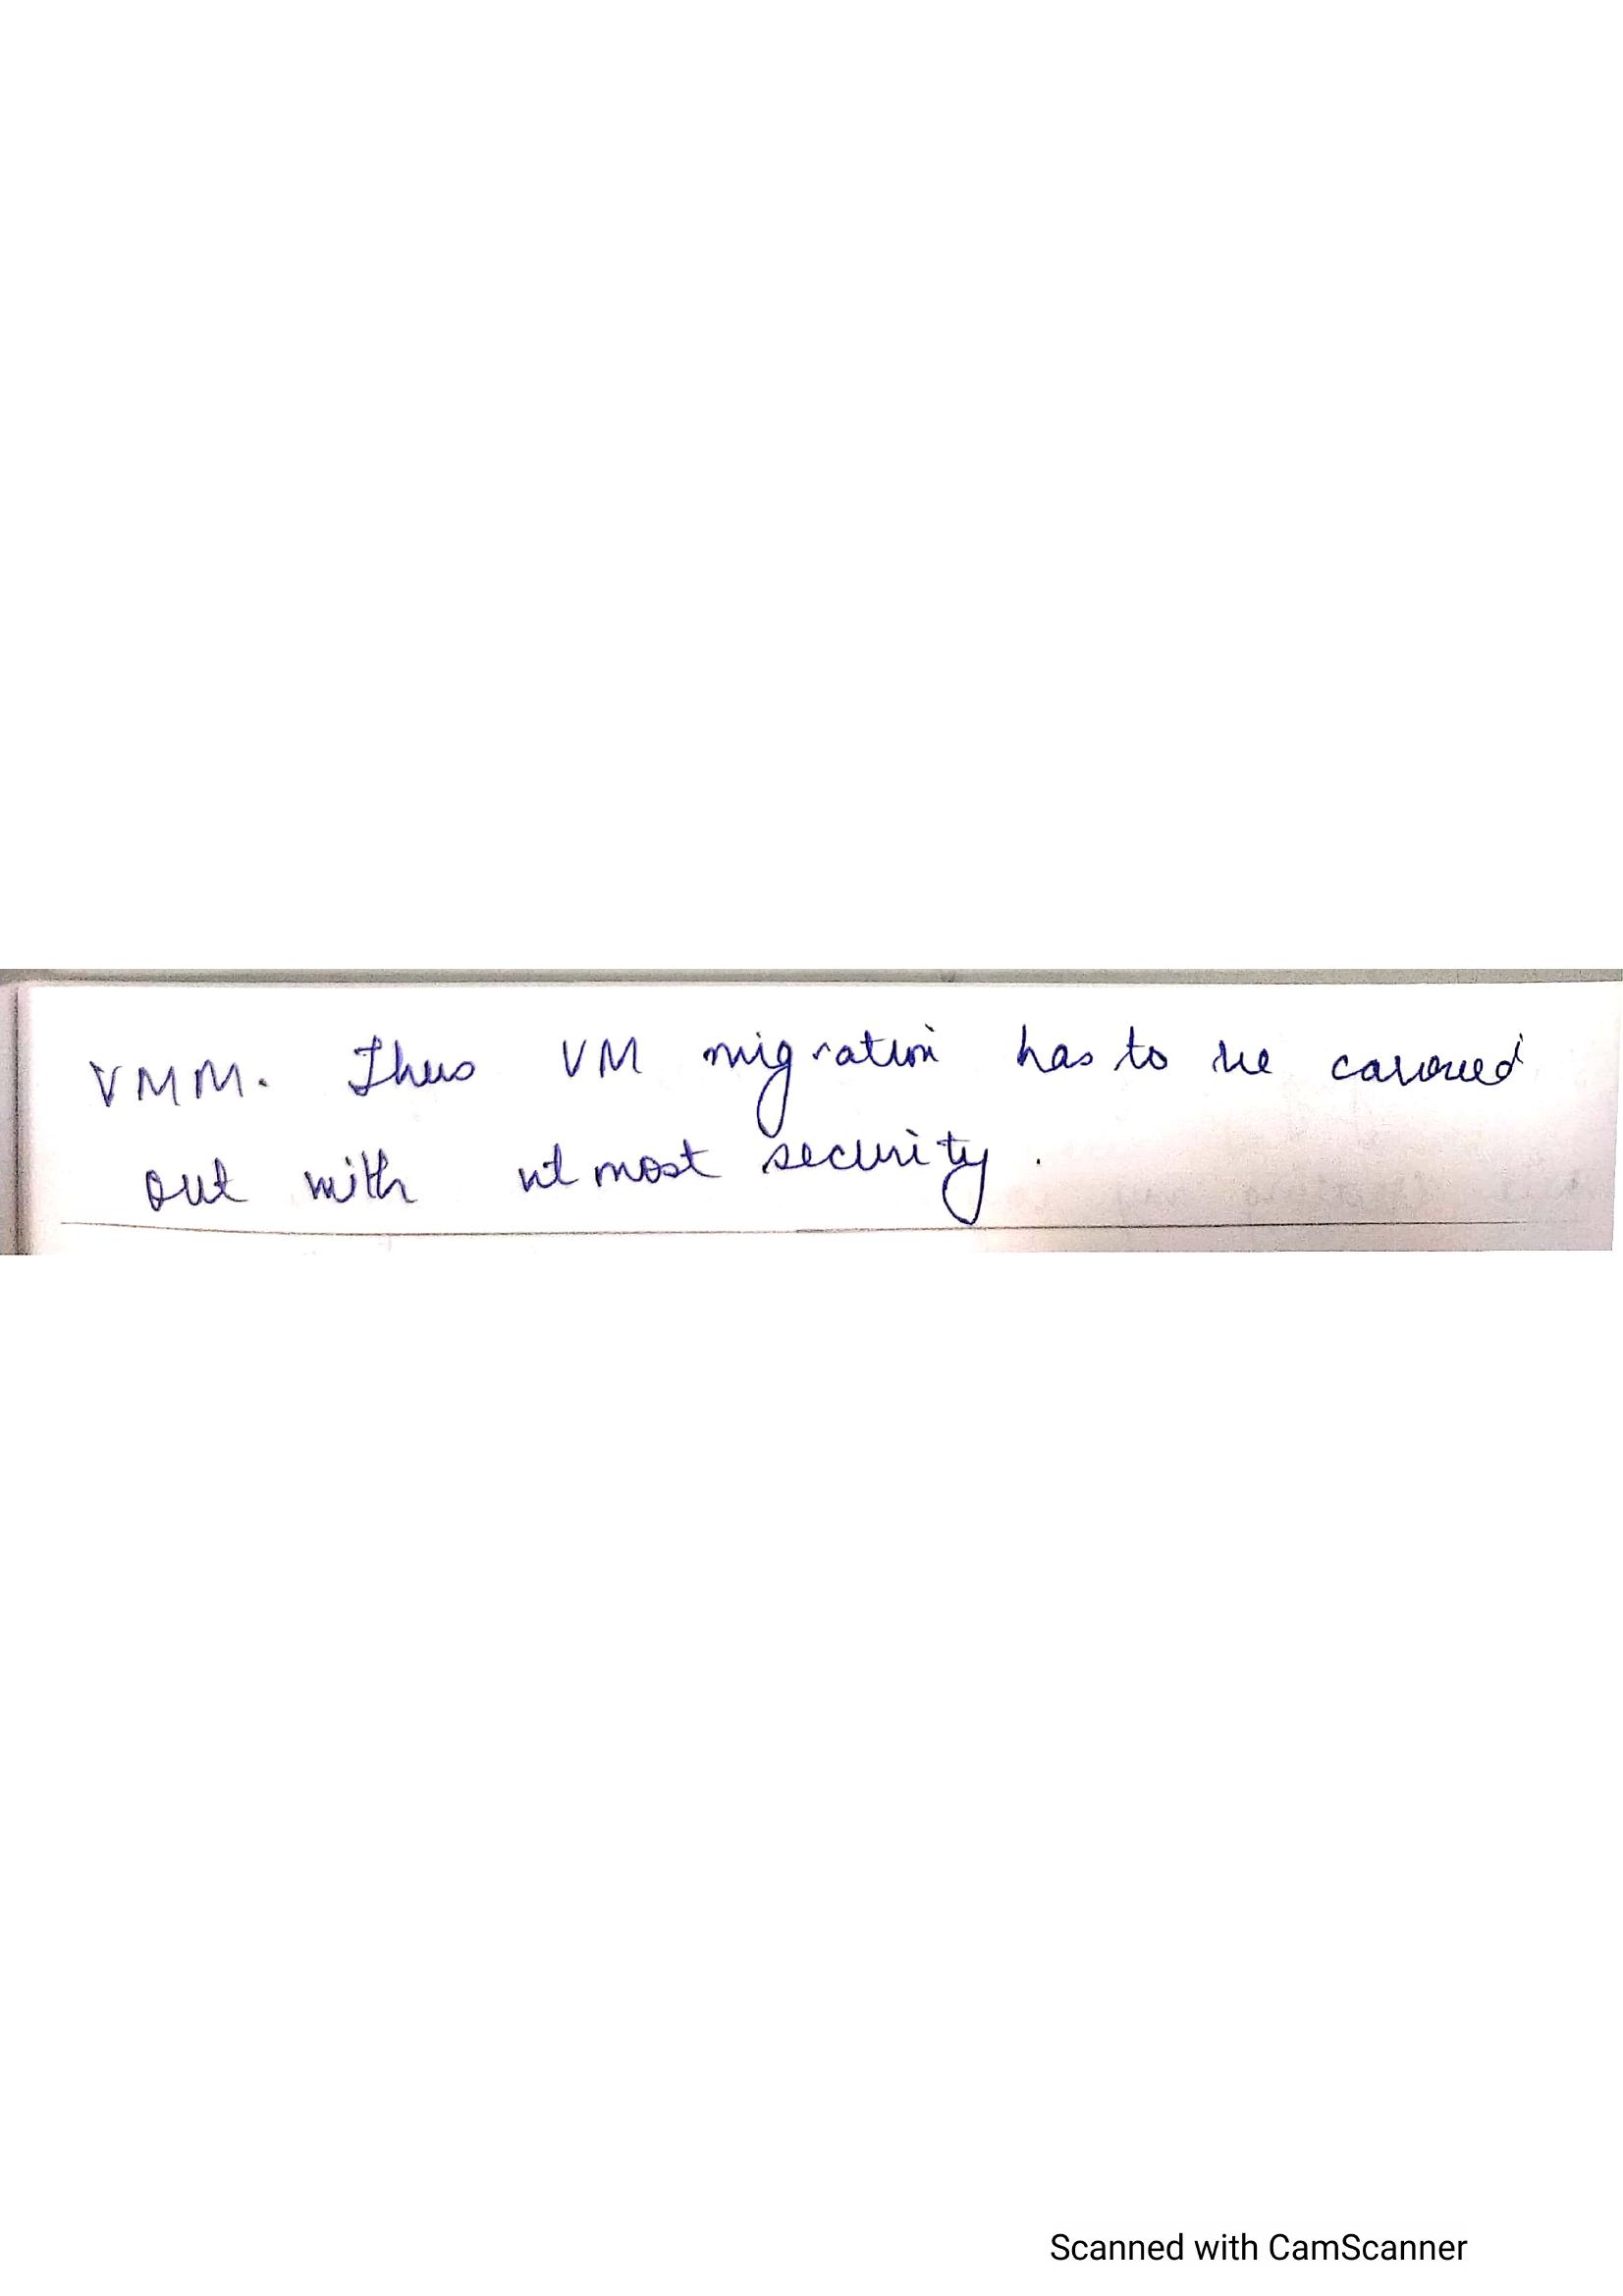 VMM. Thus VM migration has to be carried
out with utmost security.
Scanned with CamScanner